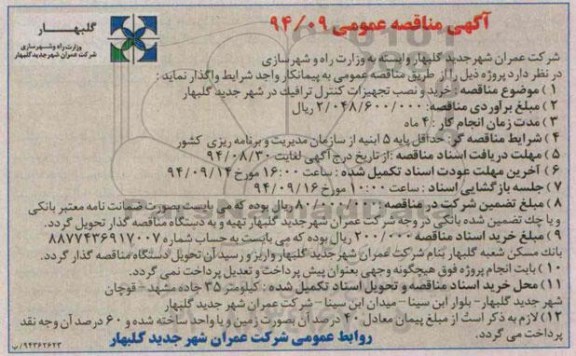 آگهی مناقصه عمومی ۹۴/۰۹
گلبهار
وزارت راه و شهرسازی
شرکت عمران شهر جدید گلبهار
شرکت عمران شهر جدید گلبهار وابسته به وزارت راه و شهرسازی
در نظر دارد پروژه ذیل را از طریق مناقصه عمومی به پیمانکار واجد شرایط واگذار نماید :
۱ ) موضوع مناقصه : خرید و نصب تجهیزات کنترل ترافیک در شهر جدید گلبهار
۲ ) مبلغ برآوردی مناقصه: ۲/۰۴۸/۶۰۰/۰۰۰ ریال
۳ ) مدت زمان انجام کار : ۴ ماه
۴ ) شرایط مناقصه گر: حداقل پایه ۵ ابنیه از سازمان مدیریت و برنامه ریزی کشور
۵ ) مهلت دریافت اسناد مناقصه :از تاریخ درج آگهی لغایت ۹۴/۰۸/۳۰
۶ ) آخرین مهلت عودت اسناد تکمیل شده : ساعت ۱۶:۰۰ مورخ ۹۴/۰۹/۱۴
۷ ) جلسه بازگشایی اسناد : ساعت ۱۰:۰۰ مورخ ۹۴/۰۹/۱۶
۸ ) مبلغ تضمین شرکت در مناقصه : ۸۰/۰۰۰/۰۰۰ ریال بوده که می بایست بصورت ضمانت نامه معتبر بانکی
و یا چک تضمین شده بانکی در وجه شرکت عمران شهر جدید گلبهار تهیه و به دستگاه مناقصه گذار تحویل گردد.
۹ ) مبلغ خرید اسناد مناقصه ۲۰۰/۰۰۰ ریال بوده که می بایست به حساب شماره ۸۸۷۷۴۳۶۹۱۷۰۰۷
بانک مسکن شعبه گلبهار بنام شرکت عمران شهر جدید گلبهار واریز و رسید آن تحویل دستگاه مناقصه گذار گردد.
۱۰ ) بابت انجام پروژه فوق هیچگونه وجهی بعنوان پیش پرداخت و تعدیل پرداخت نمی گردد.
۱۱ ) محل خرید اسناد مناقصه و تحویل اسناد تکمیل شده : کیلومتر ۳۵ جاده مشهد - قوچان
شهر جدید گلبهار- بلوار ابن سینا- میدان ابن سینا- شرکت عمران شهر جدید گلبهار
۱۲) لازم به ذکر است از مبلغ پیمان معادل ۴۰ درصد آن بصورت زمین و یا واحد ساخته شده و ۶۰ درصد آن وجه نقد
پرداخت می گردد.
روابط عمومی شرکت عمران شهر جدید گلبهار
۹۴۳۶۲۶۲۳/پ